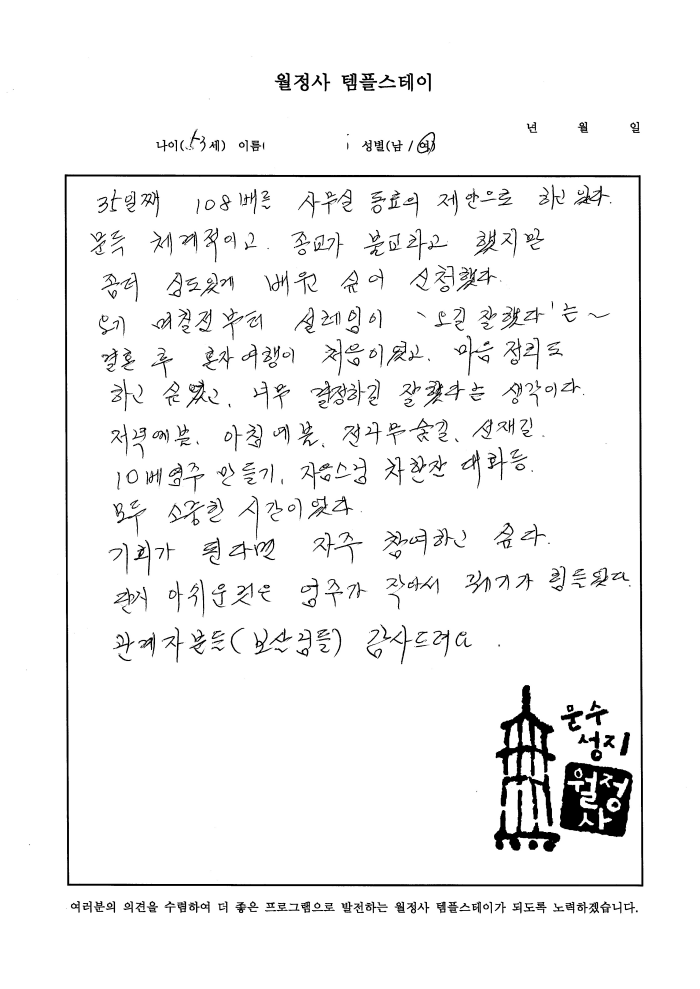 월정사 템플스테이
년 월 일
나이(53세) 이름 성별(남 / 여)
35일째 108배를 사무실 동료의 제안으로 하고 있다.
문득 체계적이고, 종교가 불교라고 했지만
좀더 심도있게 배우고 싶어 신청했다.
오기 며칠전부터 설레임이 '오길 잘했다'는~
결혼 후 혼자여행이 처음이였고, 마음정리도
하고 싶었고, 너무 결정하길 잘했다는 생각이다.
저녁예불, 아침예불, 전나무숲길, 선재길,
10배염주 만들기, 자음스님 차한잔 대화등.
모두 소중한 시간이었다.
기회가 된다면 자주 참여하고 싶다.
단지 아쉬운것은 염주가 작아서 꿰기가 힘들었다.
관계자분들(보살님들) 감사드려요.
문수
성지
월정
사
여러분의 의견을 수렴하여 더 좋은 프로그램으로 발전하는 월정사 템플스테이가 되도록 노력하겠습니다.